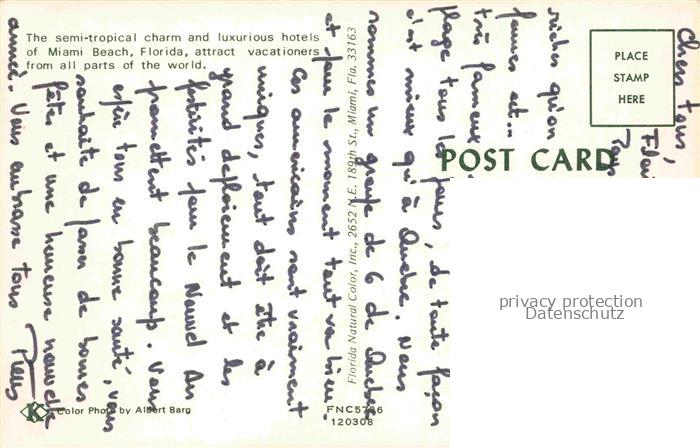 The semi-tropical charm and luxurious hotels
of Miami Beach, Florida, attract vacationers
from all parts of the world.
PLACE
STAMP
HERE
POST CARD
privacy protection
Datenschutz
Florida Natural Color, Inc., 2652 N.E. 189th St., Miami, Fla. 33163
K
Color Photo by Albert Barg
FNC5786
120308
Chers tous,
riches qu'on
plage tous les jours, de toute façon
c'est mieux qu'à Québec. Nous
sommes un groupe de 6 de Québec
et pour le moment tout va bien.
Ces américains sont vraiment
uniques, tout doit être à
grand déploiement et les
festivités pour le Nouvel An
promettent beaucoup. Vous
espère tous en bonne santé, vous
souhaite de passer de bonnes
fêtes et une heureuse nouvelle
année. Vous embrasse tous